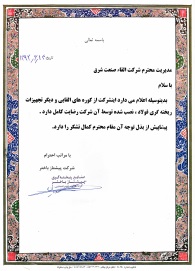 باسمه تعالی
مدیریت محترم شرکت القاء صنعت شرق
با سلام
بدینوسیله اعلام می دارد اینشرکت از کوره های القایی و دیگر تجهیزات
ریخته گری فولاد ، نصب شده توسط آن شرکت رضایت کامل دارد .
پیشاپیش از بذل توجه آن مقام محترم کمال تشکر را دارد.
با مراتب احترام
شرکت